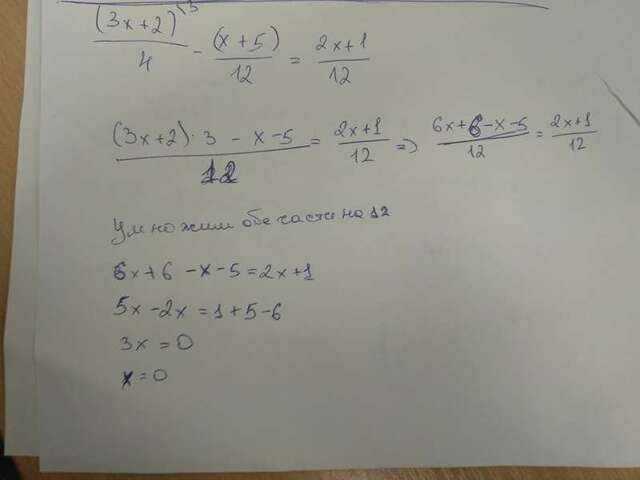 (3x+2)\3 / 4 - (x+5) / 12 = 2x+1 / 12
(3x+2)·3 - x-5 / 12 = 2x+1 / 12 => 6x+6-x-5 / 12 = 2x+1 / 12
Умножим обе части на 12
6x+6-x-5=2x+1
5x-2x=1+5-6
3x=0
x=0